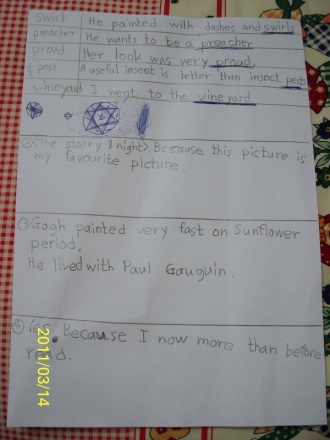 swirl He painted with dashes and swirls
preacher He wants to be a preacher
proud Her look was very proud,
pest A useful insect is better than insect pests
vineyard I went to the vineyard
②〈The starry night〉. Because this picture is
my favourite picture.
③Gogh painted very fast on Sunflower
period,
He lived with Paul Gauguin.
④ Because I now more than before
read.
2011/03/14